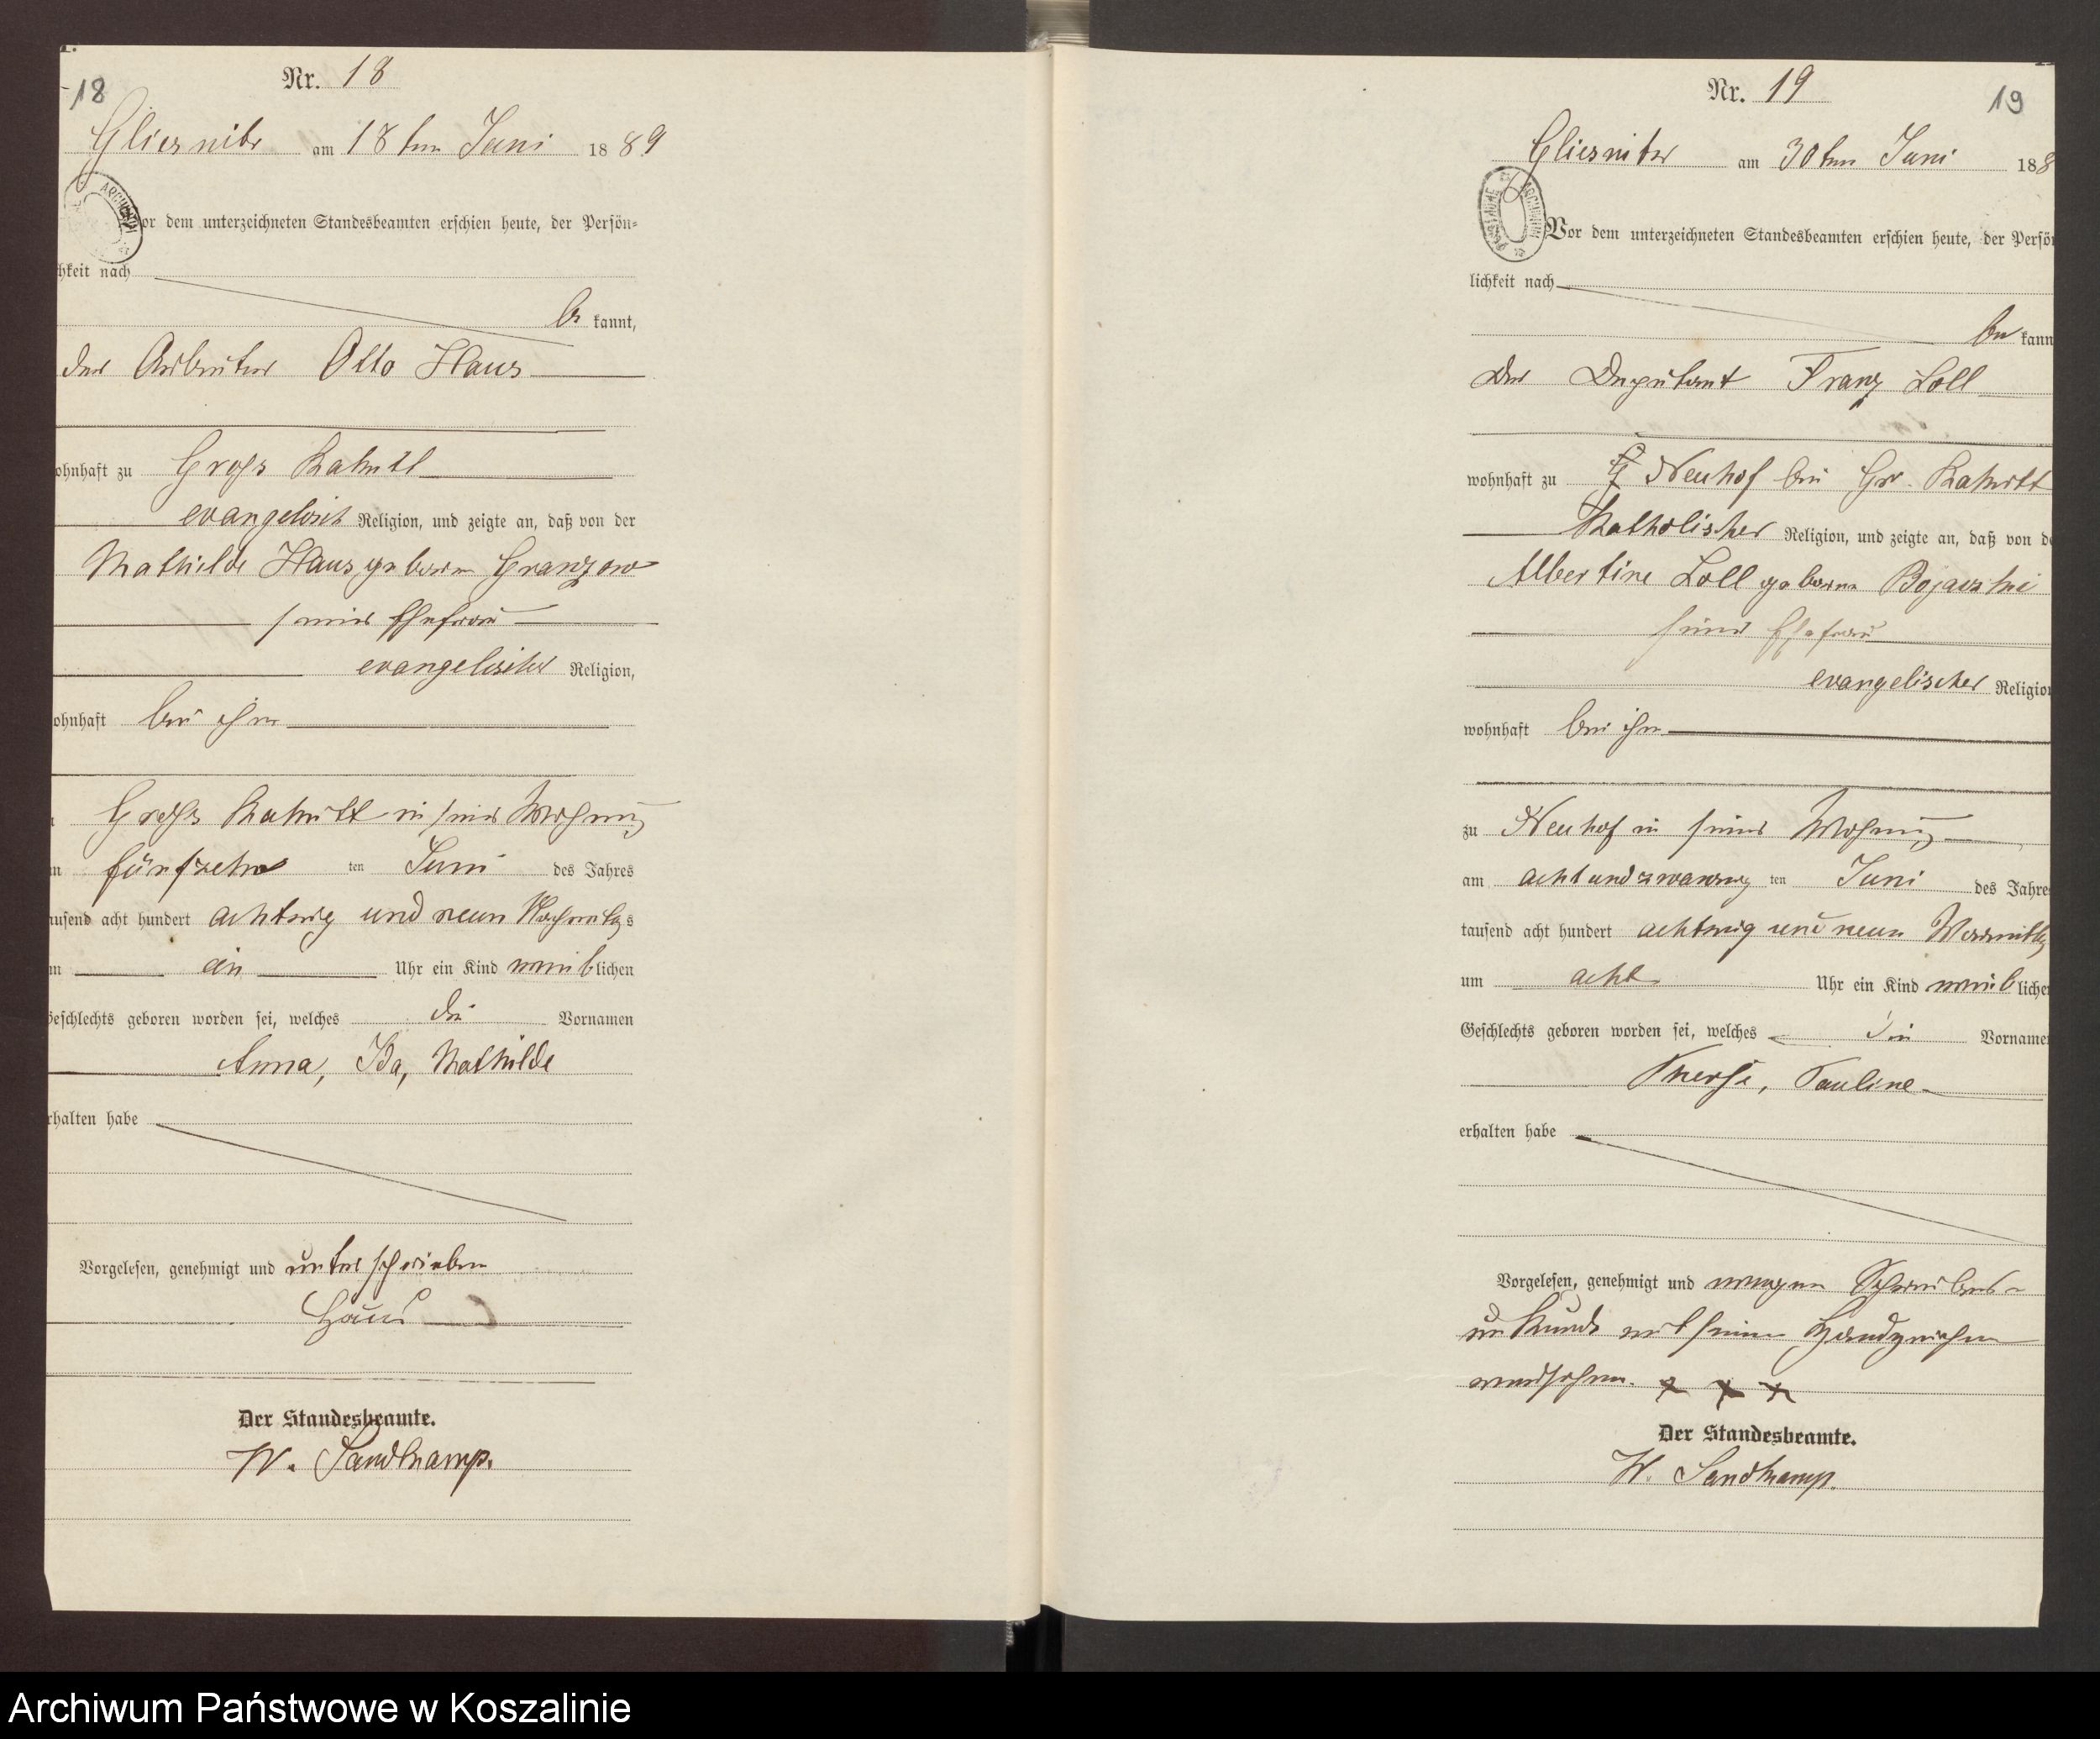 18
Nr. 18
Gliesnitz am 18ten Juni 1889
Vor dem unterzeichneten Standesbeamten erschien heute, der Persön-
hkeit nach
be kannt,
der Arbeiter Otto Haus
ohnhaft zu Gross
evangelisch Religion, und zeigte an, daß von der
Mathilde Haus geborne Granzow
seiner Ehefrau
evangelischer Religion,
ohnhaft bei ihm
Gross in seiner Wohnung
fünfzehn ten Juni des Jahres
ausend acht hundert achtzig und neun Nachmittags
m ein Uhr ein Kind weiblichen
Geschlechts geboren worden sei, welches die Vornamen
Anna, Ida, Mathilde
rhalten habe
Vorgelesen, genehmigt und unterschrieben
Haus
Der Standesbeamte.
W. Sandkamp.
Nr. 19
19
Gliesnitz am 30ten Juni 188
Vor dem unterzeichneten Standesbeamten erschien heute, der Persö
lichkeit nach
be kann
der Deputant Franz Loll
wohnhaft zu Neuhof bei Gr.
Katholischer Religion, und zeigte an, daß von de
Albertine Loll geborne
seiner Ehefrau
evangelischer Religio
wohnhaft bei ihm
zu Neuhof in seiner Wohnung
am achtundzwanzig ten Juni des Jahre
tausend acht hundert achtzig und neun Vormittags
um acht Uhr ein Kind weiblichen
Geschlechts geboren worden sei, welches die Vorname
Therese, Pauline
erhalten habe
Vorgelesen, genehmigt und wegen Schreibens-
unkunde mit seinem Handzeichen
versehen. x x x
Der Standesbeamte.
W. Sandkamp.
Archiwum Państwowe w Koszalinie